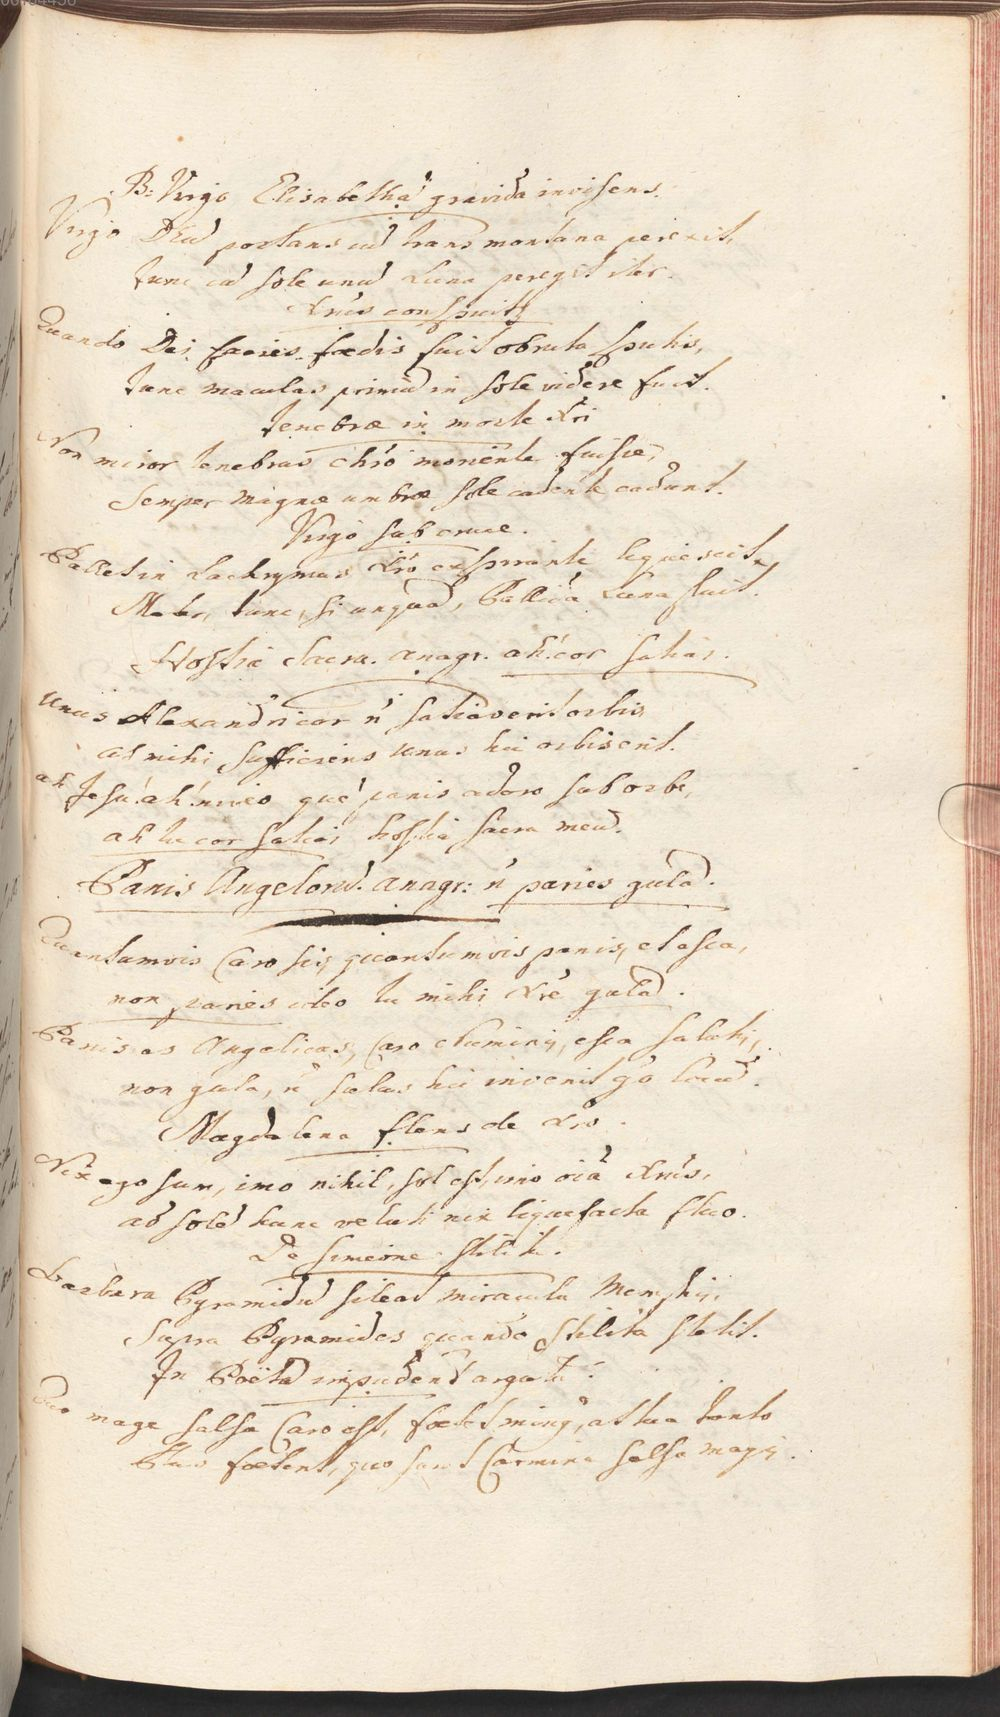 B: Virgo Elisabethã gravidã invisens.
Virgo Deũ portans cũ transmontana perexit,
tunc cũ sole unũ Luna peregit iter.
Xñs conspuitꝰ
Quando Dei facies fœdis fuit obruta sputis,
tunc maculas primũ in sole videre fuit.
tenebræ in morte Xri
Non miror tenebras chr̃o moriente fuisse,
Semper magnæ umbræ sole cadente cadunt.
Virgo sub cruce.
Pallet in lachrymas Xr̃o exspirante liquescit
Mater, tunc, si unquã, Pallida Luna fluit.
Hostia Sacra. anagr. ah! cor satias.
Unus Alexandri cor ñ satiaverit orbis
at mihi sufficiens unus hic orbis erit.
ah Jesu! ah! niveo quẽ panis adoro sub orbe,
ah tu cor satias hostia sacra meũ.
Panis Angelorũ. anagr: ñ paries gulã.
Quantumvis Caro sis, quantumvis panis, et esca,
non paries ideo tu mihi Xr̃e gulã.
Panis as Angelicas, Caro Numinis, esca salutis,
non gula, ñ salus hic invenit gõ locũ.
Magdalena flens de Xr̃o.
Nix ego sum, imo nihil, sol est, imo oĩa Xr̃us,
ad solẽ hunc veluti nix liquefacta fluo.
De Simeone Stilita.
Barbara Pyramidũ sileat miracula Memphis,
Supra Pyramides quando Stilita stetit.
In Poëtã impudentẽ argutũ.
Quo mage salsa Caro est, fœtet minꝰ, at tua tanto
Plus fœtent, quo sunt Carmina salsa magis.